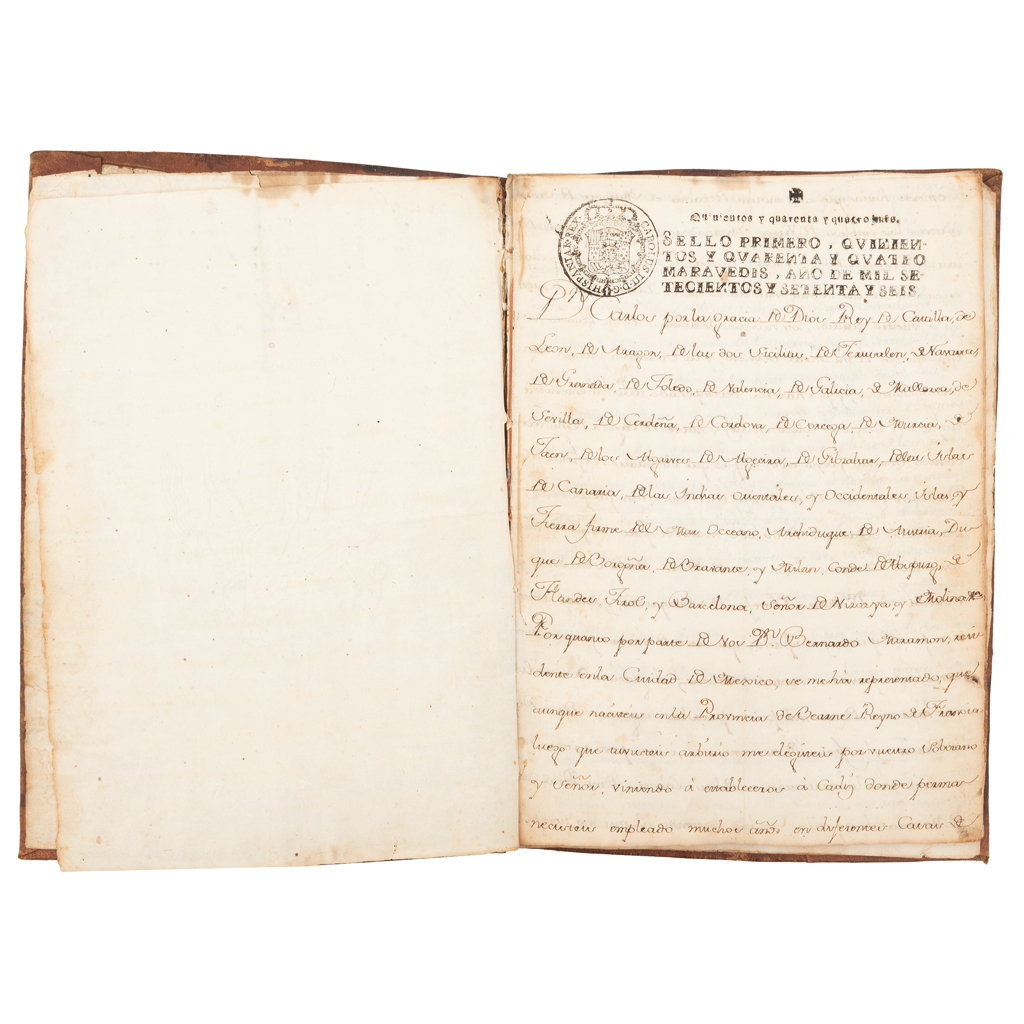 CAROLUS III D G HISPANIAR REX
Quinientos y quarenta y quatro mrs.
SELLO PRIMERO, QVINIEN-
TOS Y QVARENTA Y QVATRO
MARAVEDIS, AÑO DE MIL SE-
TECIENTOS Y SETENTA Y SEIS
Dn Carlos por la gracia de Dios Rey de Castilla, de
Leon, de Aragon, de las dos Sicilias, de Jerusalen, de Navarra,
de Granada, de Toledo, de Valencia, de Galicia, de Mallorca, de
Sevilla, de Cerdeña, de Cordova, de Corcega, de Murcia, de
Jaen, de los Algarves de Algecira, de Gibraltar, de las Islas
de Canaria, de las Indias orientales, y Occidentales, Islas, y
Tierra firme del Mar Occeano, Archiduque de Austria, Du-
que de Borgoña, de Bravante, y Milan, Conde de Abspurg, de
Flandes, Tirol, y Barcelona, Señor de Vizcaya, y Molina &ra
Por quanto por parte de Vos Dn Bernardo Miramon, resi-
dente en la Ciudad de Mexico, se me há representado, que
aunque nacisteis en la Provincia de Bearne Reyno de Francia
luego que tuvisteis arbitrio me elegisteis por vuestro Soberano
y Señor, viniendo á estableceros á Cadiz donde perma-
necisteis empleado muchos años en diferentes Casas de